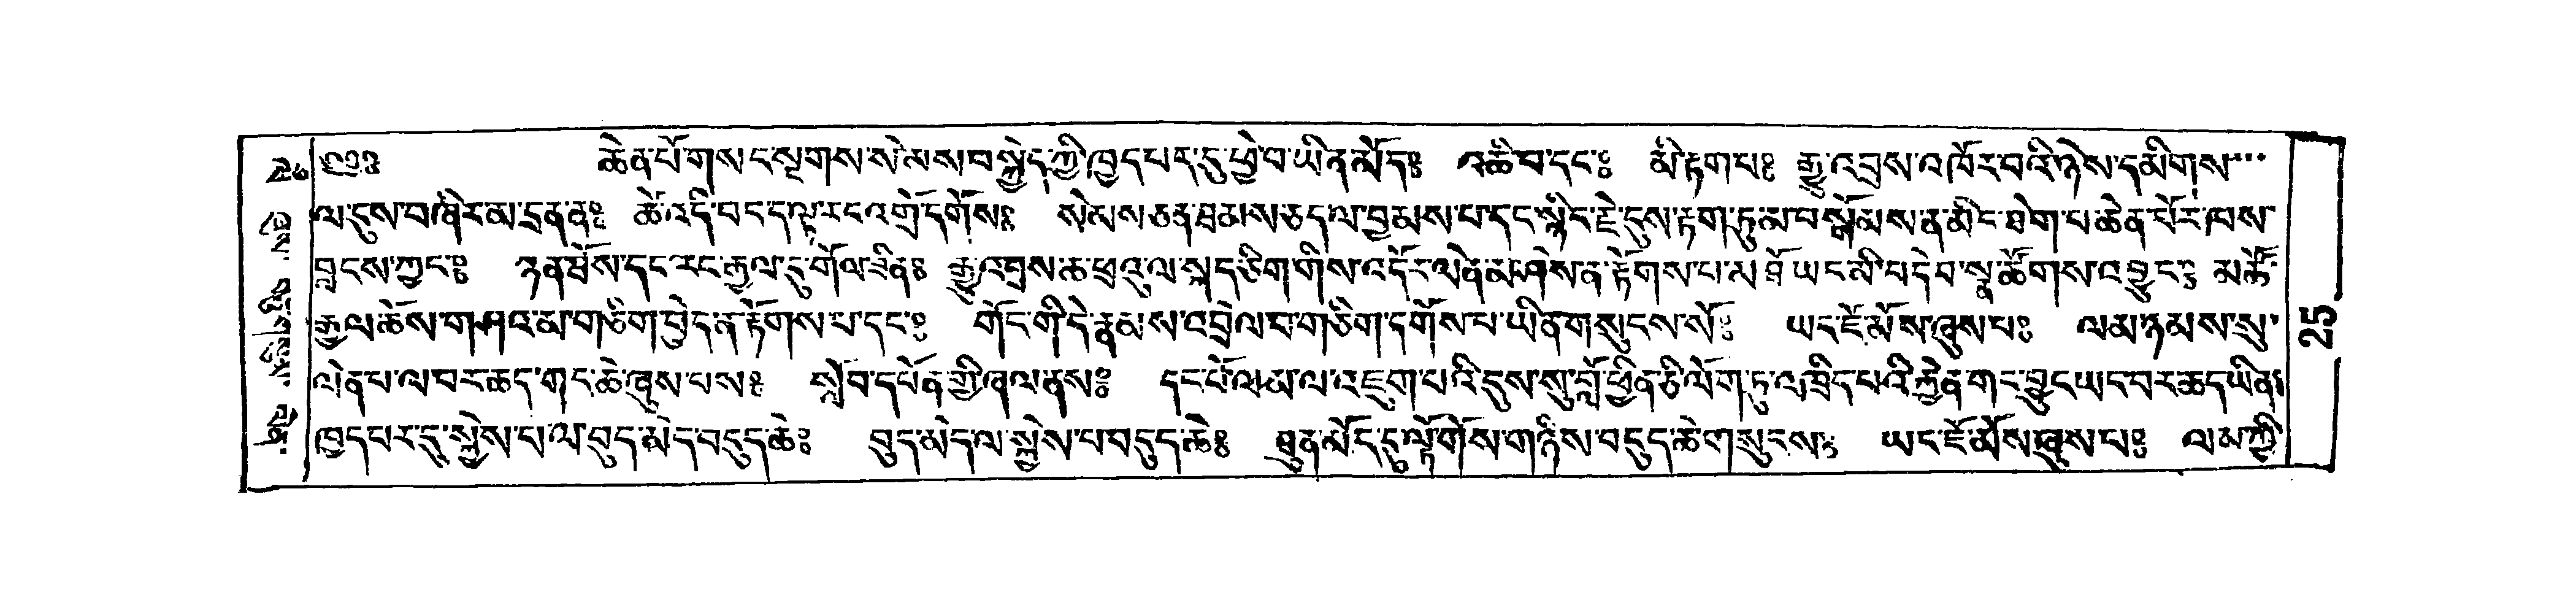 ༄༅༅། ཆེན་པོ་གསང་སྔགས་སེམས་བསྐྱེད་ཀྱི་ཁྱད་པར་དུ་ཕྱེ་བ་ཡིན་མོད༔ འཆི་བ་དང་༔ མི་རྟག་པ༔ རྒྱུ་འབྲས་འཁོར་བའི་ཉེས་དམིགས་
ལ་དུས་བཞིར་མ་དྲན་ན༔ ཚེ་འདི་བད་ད་ལྟ་རང་འགྲེ་དགོས༔ སེམས་ཅན་ཐམས་ཅད་ལ་བྱམས་པ་དང་སྙིང་རྗེ་དུས་རྟག་ཏུ་མ་བསྒོམས་ན་མིང་ཐེག་པ་ཆེན་པོར་ཁས་
བླངས་ཀྱང་༔ ཉན་ཐོས་དང་རང་རྒྱལ་དུ་གོལ་ཟིན༔ རྒྱུ་འབྲས་ཆ་ཕྲ་འུལ་སྐད་ཅིག་གིས་འདོར་ལེན་མ་ཤེས་ན་རྟོགས་པ་མཐོ་ཡང་མི་བདེ་བ་སྣ་ཚོགས་འབྱུང་༔ མཚོ་
རྒྱལ་ཆོས་གཤའ་མ་གཅིག་བྱེད་ན་རྟོགས་པ་དང་༔ གོང་གི་དེ་རྣམས་འབྲེལ་བ་གཅིག་དགོས་པ་ཡིན་གསུངས་སོ༔ ཡང་ཇོ་མོས་ཞུས་པ༔ ལམ་ཉམས་སུ་
ལེན་པ་ལ་བར་ཆད་གང་ཆེ་ཞུས་པས༔ སློབ་དཔོན་གྱི་ཞལ་ནས༔ དང་པོ་ལམ་ལ་འཇུག་པའི་དུས་སུ་བློ་ཕྱིན་ཅི་ལོག་ཏུ་འཁྲིད་པའི་རྐྱེན་གང་བྱུང་ཡང་བར་ཆད་ཡིན༔
ཁྱད་པར་དུ་སྐྱེས་པ་ལ་བུད་མེད་བདུད་ཆེ༔ བུད་མེད་ལ་སྐྱེས་པ་བདུད་ཆེ༔ ཐུན་མོང་དུ་ལྟོ་གོས་གཉིས་བདུད་ཆེ་གསུངས༔ ཡང་ཇོ་མོས་ཞུས་པ༔ ལམ་ཀྱི་